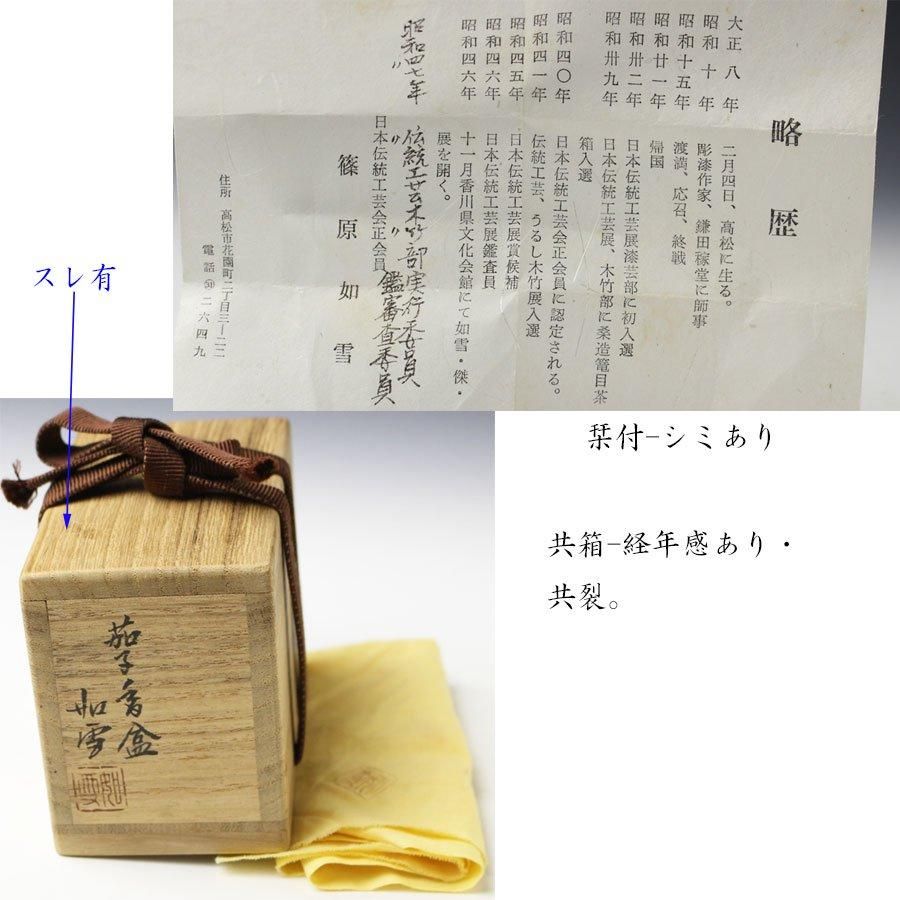 略歴
大正八年 二月四日、高松に生る。
昭和十年 彫漆作家、鎌田稼堂に師事
昭和十五年 渡満、応召、終戦
昭和廿一年 帰国
昭和卅二年 日本伝統工芸展漆芸部に初入選
昭和卅九年 日本伝統工芸展、木竹部に桑造篭目茶
箱入選
昭和四〇年 日本伝統工芸会正会員に認定される。
昭和四一年 伝統工芸、うるし木竹展入選
昭和四五年 日本伝統工芸展賞候補
昭和四六年 日本伝統工芸展鑑査員
昭和四六年 十一月香川県文化会館にて如雪・傑・
展を開く。
昭和四七年 伝統工芸木竹部実行委員
〃 〃 〃 鑑審査委員
日本伝統工芸会正会員
篠原如雪
住所 高松市花園町二丁目三ー二二
電話㉛二六四九
スレ有
栞付-シミあり
共箱-経年感あり・
共裂。
茄子香盒
如雪
如雪